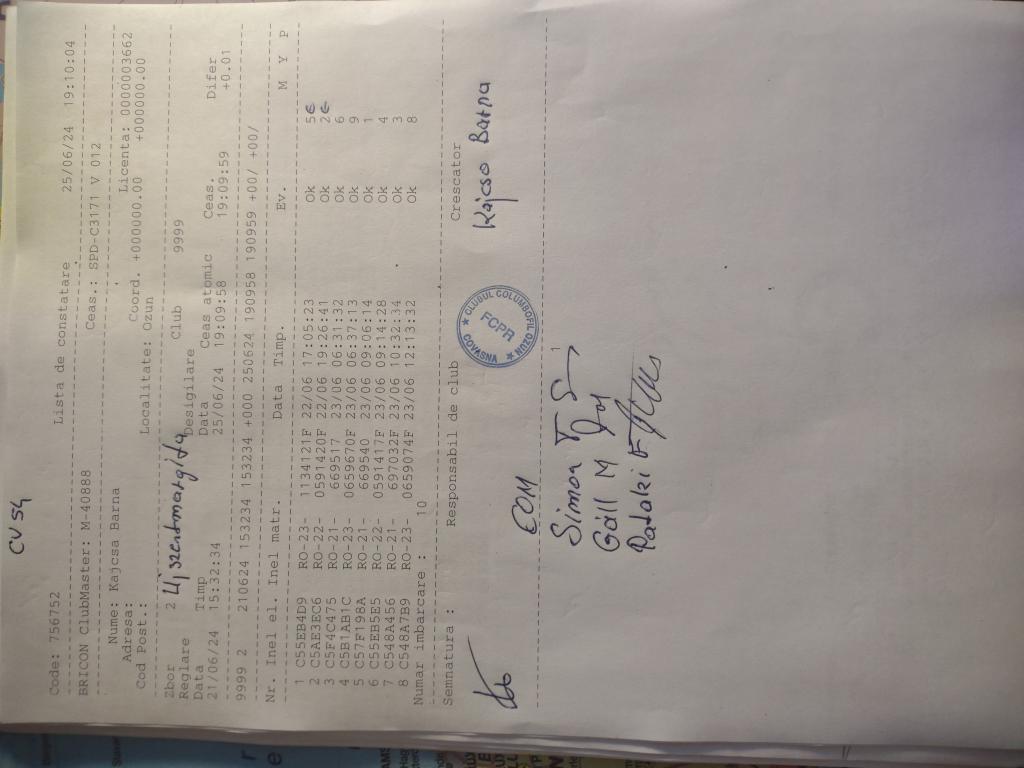 CV 54
Code: 756752 Lista de constatare 25/06/24 19:10:04
BRICON ClubMaster: M-40888 Ceas.: SPD-C3171 V 012
Nume: Kajcsa Barna Licenta: 0000003662
Adresa: Coord. +000000.00 +000000.00
Cod Post.: Localitate: Ozun
Zbor 2 Ujszentmargita Club 9999
Reglare Desigilare
Data Timp Data Ceas atomic Ceas. Difer
21/06/24 15:32:34 25/06/24 19:09:58 19:09:59 +0.01
9999 2 210624 153234 153234 +000 250624 190958 190959 +00/ +00/
Nr. Inel el. Inel matr. Data Timp. Ev. M Y P
1 C55EB4D9 RO-23- 1134121F 22/06 17:05:23 Ok 5€
2 C5AE3EC6 RO-22- 0591420F 22/06 19:26:41 Ok 2€
3 C5F4C475 RO-21- 669517 23/06 06:31:32 Ok 6
4 C5B1AB1C RO-23- 0659670F 23/06 06:37:13 Ok 9
5 C57F198A RO-21- 669640 23/06 09:06:14 Ok 1
6 C55EB5E5 RO-22- 0591417F 23/06 09:14:28 Ok 4
7 C548A456 RO-21- 697032F 23/06 10:32:34 Ok 3
8 C548A7B9 RO-23- 0659074F 23/06 12:13:32 Ok 8
Numar imbarcare : 10
Semnatura : Responsabil de club Crescator
CLUBUL COLUMBOFIL OZUN
FCPR
COVASNA
Kajcso Barna
EOM
Simon
Gáll M
Pataki E